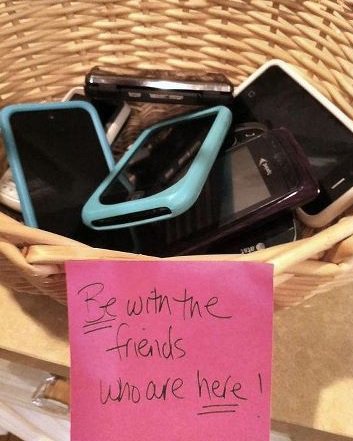 Be with the
friends
who are here!
at&t